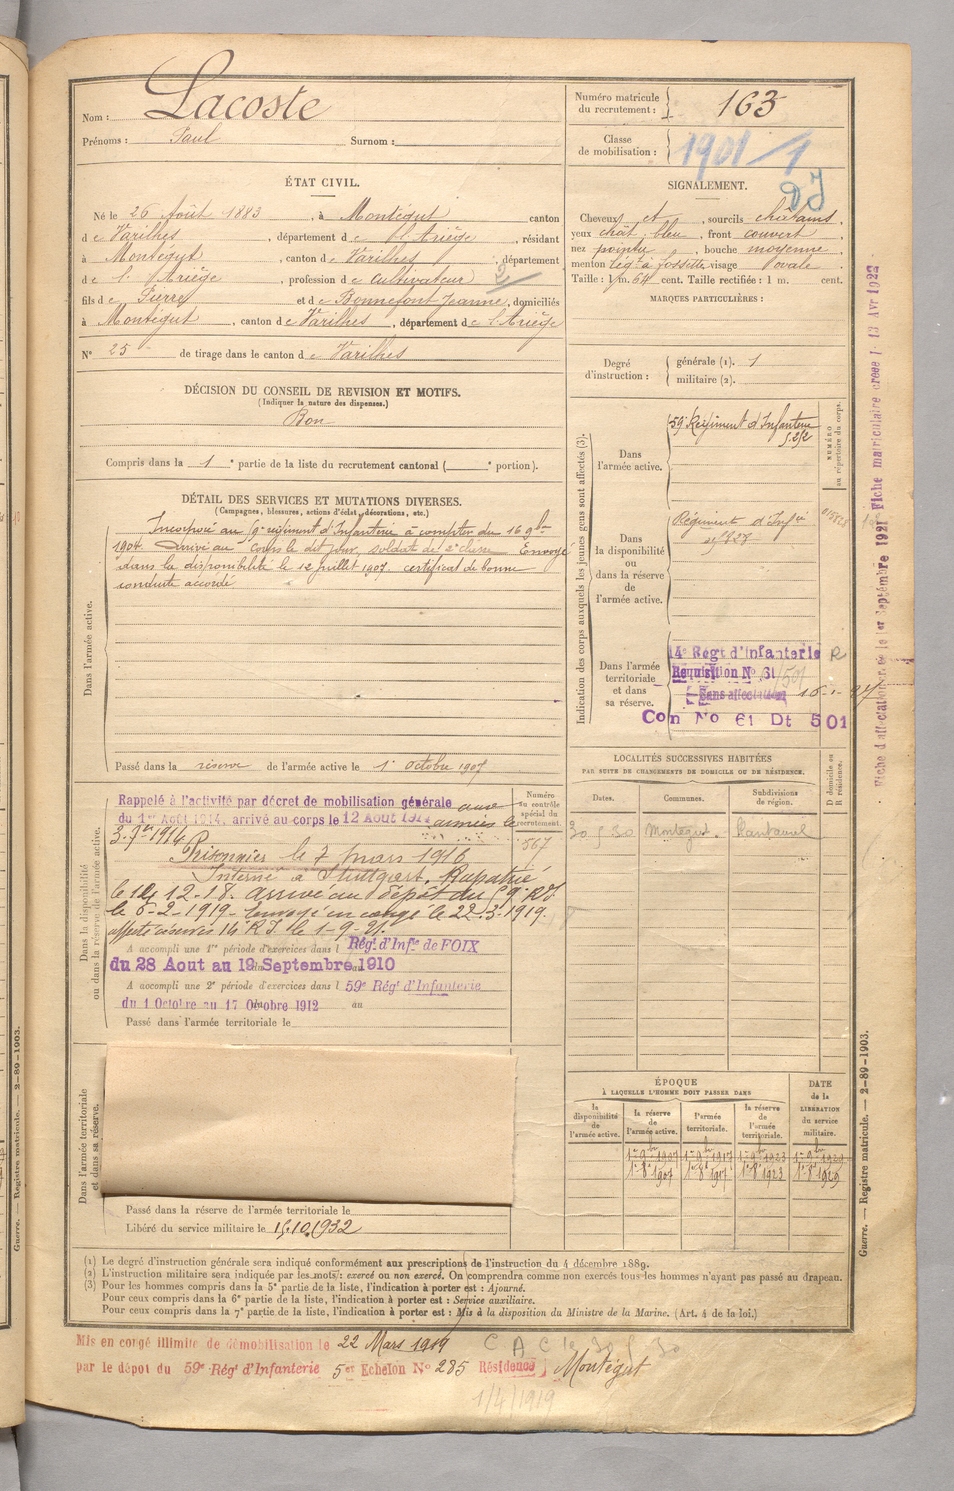 Nom : Lacoste
Prénoms : Paul Surnom :
Numéro matricule du recrutement : 163
Classe de mobilisation : 1901/1
ÉTAT CIVIL.
Né le 26 Août 1883, à Montégut canton
de Varilhes, département de l'Ariège, résidant
à Montégut, canton de Varilhes, département
de l'Ariège, profession de cultivateur 2
fils de Pierre et de Bonnefont Jeanne, domiciliés
à Montégut, canton de Varilhes, département de l'Ariège
N° 25 de tirage dans le canton de Varilhes
SIGNALEMENT.
Cheveux et, sourcils châtains,
yeux chât. bleu, front couvert,
nez pointu, bouche moyenne
menton lég.t à fossette visage ovale
Taille : 1 m. 64 cent. Taille rectifiée : 1 m. cent.
MARQUES PARTICULIÈRES :
Degré d'instruction : générale (1). 1
militaire (2).
DÉCISION DU CONSEIL DE REVISION ET MOTIFS.
(Indiquer la nature des dispenses.)
Bon
Compris dans la 1e partie de la liste du recrutement cantonal ( e portion).
DÉTAIL DES SERVICES ET MUTATIONS DIVERSES.
(Campagnes, blessures, actions d'éclat, décorations, etc.)
Dans l'armée active.
Incorporé au 59e régiment d'Infanterie à compter du 16 9bre
1904. Arrivé au corps le dit jour, soldat de 2e classe. Envoyé
dans la disponibilité le 12 juillet 1907. certificat de bonne
conduite accordé
Passé dans la réserve de l'armée active le 1er octobre 1907
Indication des corps auxquels les jeunes gens sont affectés (3).
NUMÉRO au répertoire du corps.
Dans l'armée active.
59e Régiment d'Infanterie
Dans la disponibilité ou dans la réserve de l'armée active.
Régiment d'Infie
Dans l'armée territoriale et dans sa réserve.
14e Régt d'Infanterie R
Requisition No 61
Sans affectation
Con No 61 Dt 501
LOCALITÉS SUCCESSIVES HABITÉES
PAR SUITE DE CHANGEMENTS DE DOMICILE OU DE RÉSIDENCE.
Dates. Communes. Subdivisions de région. D domicile ou R résidence.
30 5 30 Montégut
Dans la disponibilité ou dans la réserve de l'armée active.
Numéro au contrôle spécial du recrutement.
567
Rappelé à l'activité par décret de mobilisation générale
du 1er Août 1914, arrivé au corps le 12 Août 1914 aux armées le
3-7bre 1914
Prisonnier le 7 mars 1916
Interné à Stuttgart. Rapatrié
le 12-18. arrivé au dépôt du 59e RI
le 6-2-1919. Envoyé en congé le 22-3-1919.
affecté réserves 14e R.I. le 1-9-21.
A accompli une 1re période d'exercices dans l Régt d'Infie de FOIX
du 28 Aout au 19 Septembre 1910
A accompli une 2e période d'exercices dans l 59e Régt d'Infanterie
du 1 Octobre au 17 Octobre 1912 au
Passé dans l'armée territoriale le
Dans l'armée territoriale et dans sa réserve.
Passé dans la réserve de l'armée territoriale le
Libéré du service militaire le 15.10.1932
ÉPOQUE
À LAQUELLE L'HOMME DOIT PASSER DANS
DATE de la LIBÉRATION du service militaire.
la disponibilité de l'armée active. la réserve de l'armée active. l'armée territoriale. la réserve de l'armée territoriale.
1er 9bre 1907 1er 9bre 1917 1er 9bre 1923 1er 9bre 1929
1er 8bre 1907 1er 8bre 1917 1er 8bre 1923 1er 8bre 1929
(1) Le degré d'instruction générale sera indiqué conformément aux prescriptions de l'instruction du 4 décembre 1889.
(2) L'instruction militaire sera indiquée par les mots : exercé ou non exercé. On comprendra comme non exercés tous les hommes n'ayant pas passé au drapeau.
(3) Pour les hommes compris dans la 5e partie de la liste, l'indication à porter est : Ajourné.
Pour ceux compris dans la 6e partie de la liste, l'indication à porter est : Service auxiliaire.
Pour ceux compris dans la 7e partie de la liste, l'indication à porter est : Mis à la disposition du Ministre de la Marine. (Art. 4 de la loi.)
Mis en congé illimité de démobilisation le 22 Mars 1919
par le dépôt du 59e Régt d'Infanterie 5er Echelon No 285 Résidence Montégut
C A C le 30 5 30
1/4/1919
Guerre. — Registre matricule. — 2-89-1903.
Guerre. — Registre matricule. — 2-89-1903.